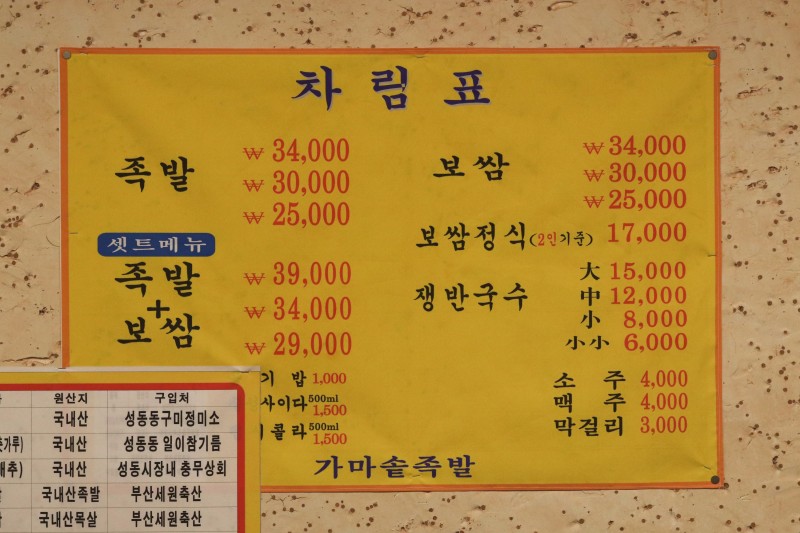 차림표
족발 ₩ 34,000
₩ 30,000
₩ 25,000
셋트메뉴
족발 + 보쌈 ₩ 39,000
₩ 34,000
₩ 29,000
보쌈 ₩ 34,000
₩ 30,000
₩ 25,000
보쌈정식(2인기준) 17,000
쟁반국수 大 15,000
中 12,000
小 8,000
小小 6,000
기 밥 1,000
사이다 500ml 1,500
콜라 500ml 1,500
소 주 4,000
맥 주 4,000
막걸리 3,000
가마솥족발
원산지 구입처
국내산 성동동구미정미소
국내산 성동동 일이참기름
국내산 성동시장내 충무상회
국내산족발 부산세원축산
국내산목살 부산세원축산